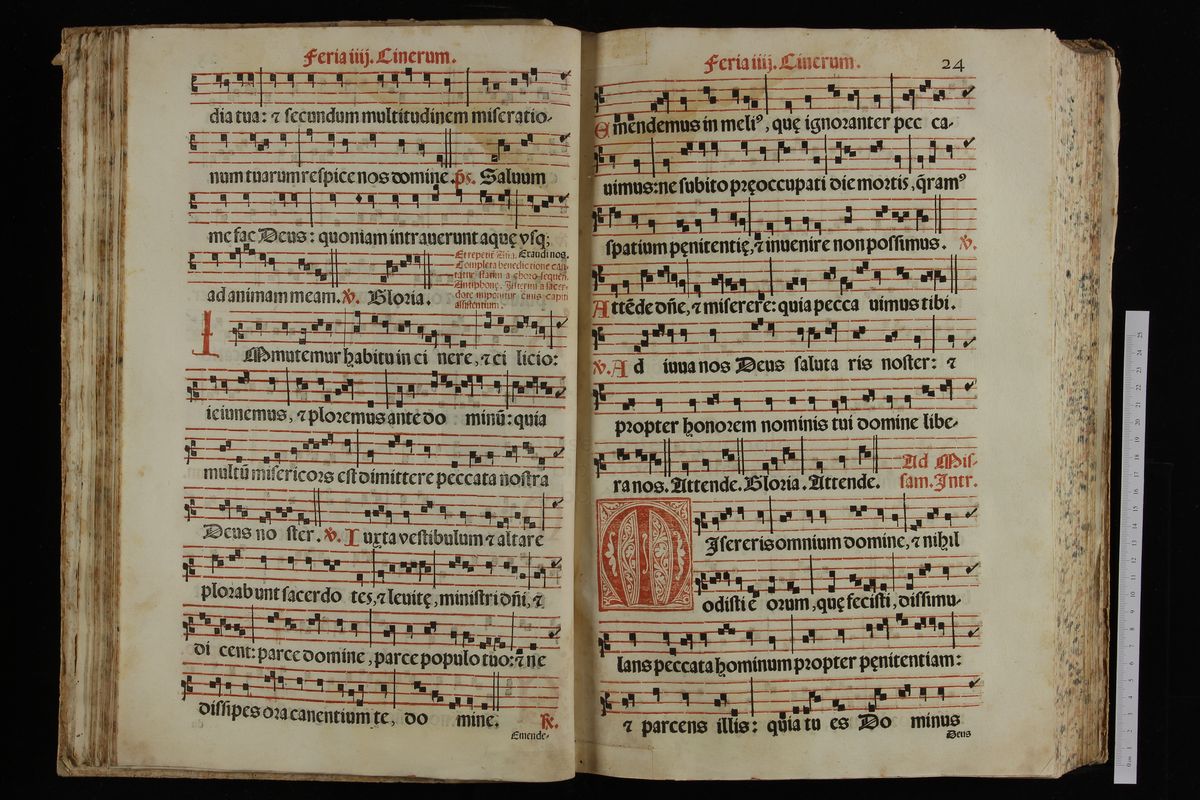 Feria iiij. Cinerum.
dia tua: ⁊ secundum multitudinem miseratio-
num tuarum respice nos domine. p̄s. Saluum
me fac Deus: quoniam intrauerunt aquę vsq;
Et repetit Aña. Exaudi nos.
Completa benedictione can-
tatur statim a choro sequens
Antiphona. Interim a sacer-
dote imponitur cinis capiti
assistentium.
ad animam meam. ℣. Gloria.
IMmutemur habitu in ci nere, ⁊ ci licio:
ieiunemus, ⁊ ploremus ante do minū: quia
multū misericors est dimittere peccata nostra
Deus no ster. ℣. Iuxta vestibulum ⁊ altare
plorabunt sacerdo tes, ⁊ leuitę, ministri dñi, ⁊
di cent: parce domine, parce populo tuo: ⁊ ne
dissipes ora canentium te, do mine. ℟.
Emende-
Feria iiij. Cinerum. 24
Emendemus in meliꝰ, quę ignoranter pec ca-
uimus: ne subito pręoccupati die mortis, q̄ramꝰ
spatium pęnitentię, ⁊ inuenire non possimus. ℣.
Attēde dñe, ⁊ miserere: quia pecca uimus tibi.
℣. Ad iuua nos Deus saluta ris noster: ⁊
propter honorem nominis tui domine libe-
ra nos. Attende. Gloria. Attende.
Ad Mis-
sam. Intr.
MIsereris omnium domine, ⁊ nihil
odisti e orum, quę fecisti, dissimu-
lans peccata hominum propter pęnitentiam:
⁊ parcens illis: quia tu es Do minus
Deus